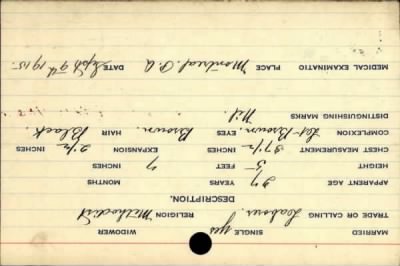 MARRIED SINGLE yes WIDOWER
TRADE OR CALLING Laborer. RELIGION Methodist
DESCRIPTION.
APPARENT AGE 27 YEARS MONTHS
HEIGHT 5 FEET 7 INCHES
CHEST MEASUREMENT 37 1/2 INCHES EXPANSION 2 1/2 INCHES
COMPLEXION Lgt-Brown. EYES Brown. HAIR Black.
DISTINGUISHING MARKS Nil.
MEDICAL EXAMINATIO PLACE Montreal. P.Q DATE Sept 9th 1915.